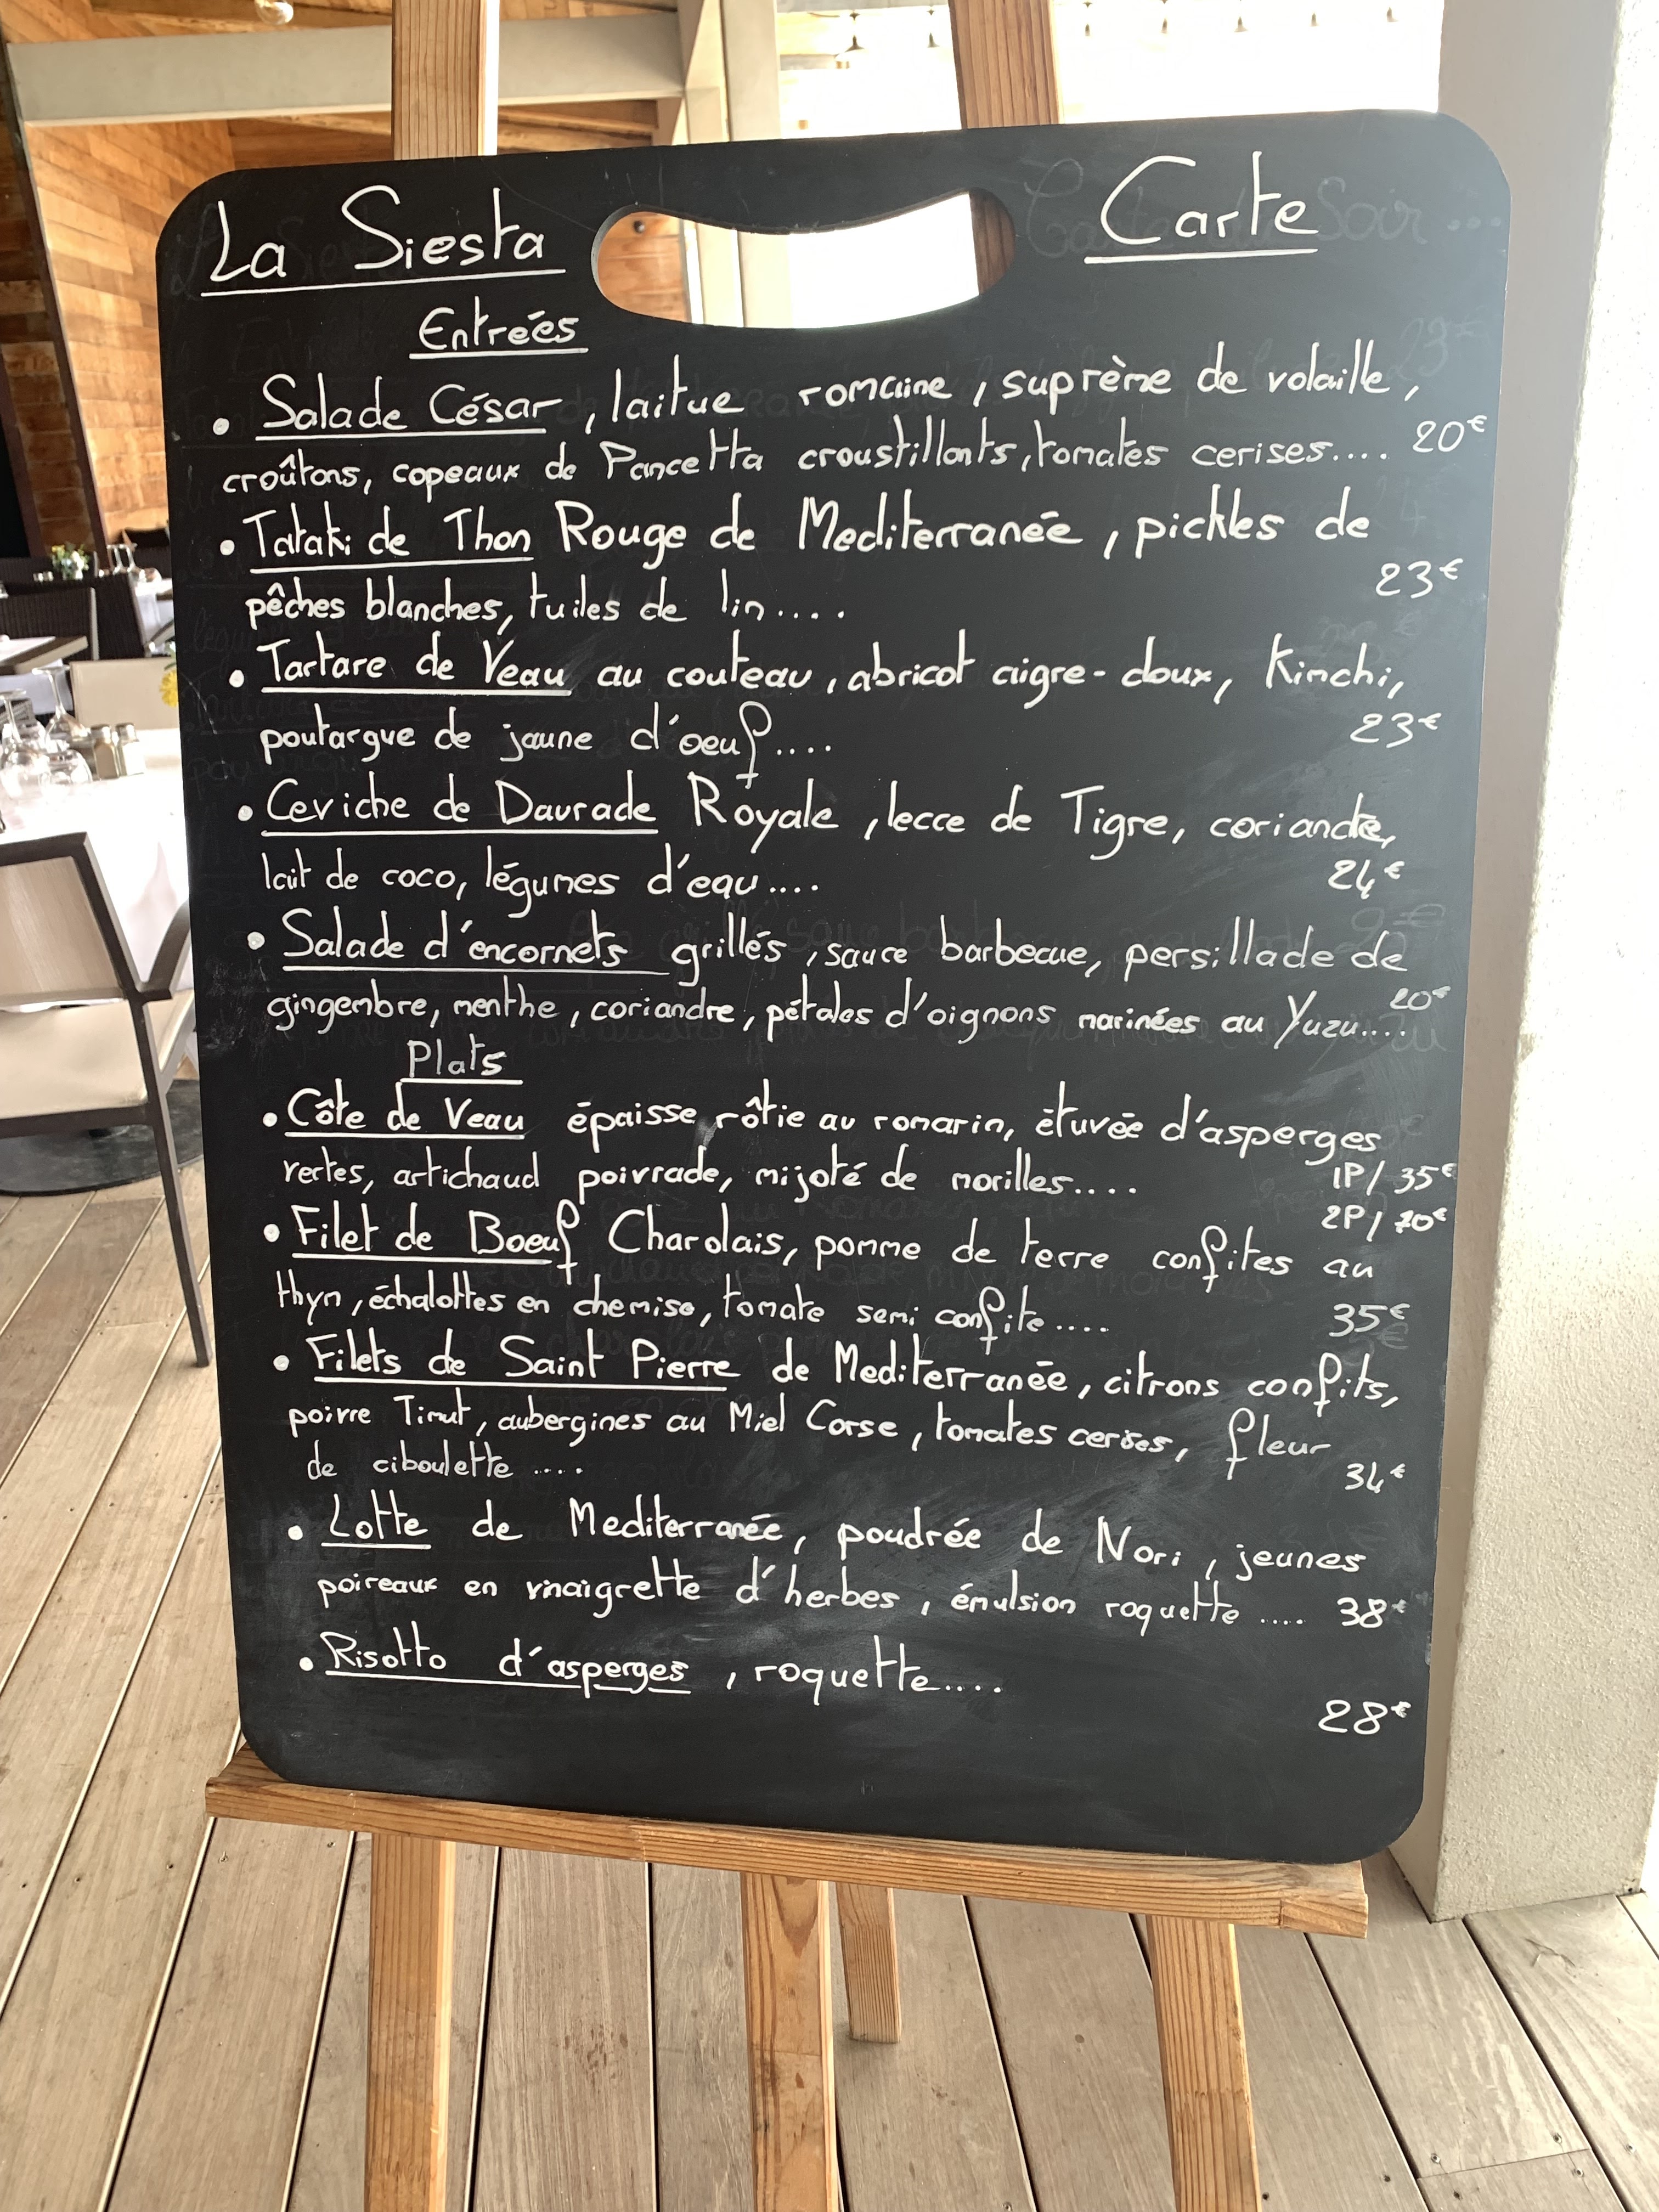 La Siesta Carte
Entrées
• Salade César, laitue romaine, suprème de volaille,
croûtons, copeaux de Pancetta croustillants, tomates cerises.... 20€
• Tataki de Thon Rouge de Mediterranée, pickles de
pêches blanches, tuiles de lin.... 23€
• Tartare de Veau au couteau, abricot aigre-doux, Kimchi,
poutargue de jaune d'oeuf.... 23€
• Ceviche de Daurade Royale, lecce de Tigre, coriandre,
lait de coco, légumes d'eau.... 24€
• Salade d'encornets grillés, sauce barbecue, persillade de
gingembre, menthe, coriandre, pétales d'oignons marinées au Yuzu.... 20€
Plats
• Côte de Veau épaisse rôtie au romarin, étuvée d'asperges
vertes, artichaud poivrade, mijoté de morilles.... 1P/ 35€
2P/ 70€
• Filet de Boeuf Charolais, pomme de terre confites au
thym, échalottes en chemise, tomate semi confite.... 35€
• Filets de Saint Pierre de Mediterranée, citrons confits,
poivre Timut, aubergines au Miel Corse, tomates cerises, fleur
de ciboulette.... 34€
• Lotte de Mediterranée, poudrée de Nori, jeunes
poireaux en vinaigrette d'herbes, émulsion roquette.... 38€
• Risotto d'asperges, roquette....
28€